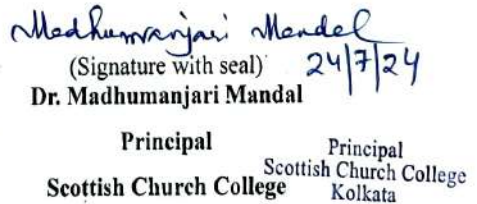 Madhumanjari Mandal
(Signature with seal) 24/7/24
Dr. Madhumanjari Mandal
Principal
Scottish Church College
Principal
Scottish Church College
Kolkata